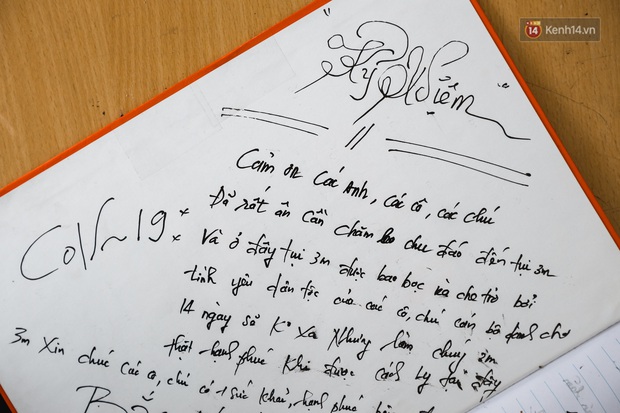 14 Kenh14.vn
"Kỷ Niệm"
Cảm ơn Các Anh, các cô, các chú
Đã rất ân cần chăm lo chu đáo đến tụi 3m
Và ở đây tụi 3m được bao bọc và che trở bởi
tình yêu dân tộc của các cô, chú cán bộ dành cho
14 ngày số K° Xa Nhưng làm chúng 3m
thật hạnh phúc khi được cách ly tại đây
CoVi~19
3m xin chúc các cô, chú có 1 sức khoẻ, hạnh phúc